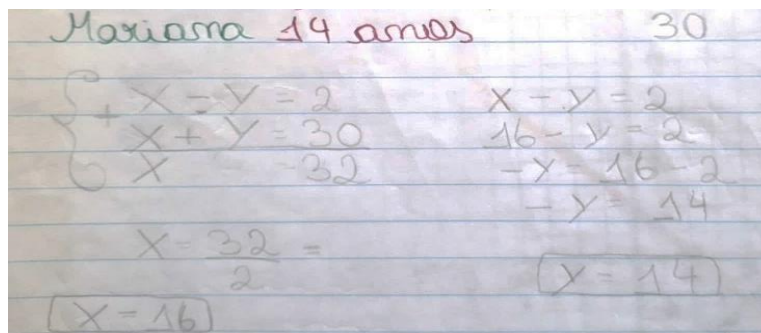 Mariana 14 anos 30
+ x - y = 2
x + y = 30
x = 32
x = 32/2 =
x = 16
x - y = 2
16 - y = 2
- y = 16 - 2
- y = 14
y = 14